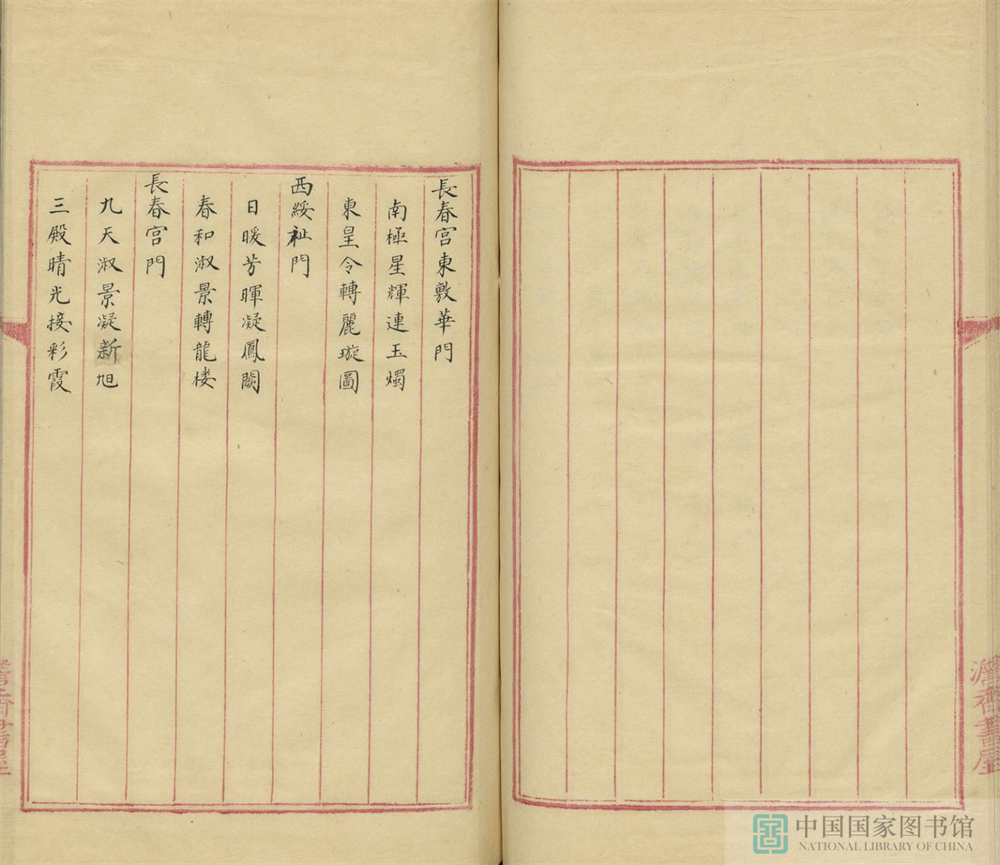 長春宮東敷華門
南極星輝連玉燭
東皇令轉麗璇圖
西綏祉門
日暖芳暉凝鳳闕
春和淑景轉龍楼
長春宮門
九天淑景凝新旭
三殿晴光接彩霞
中国国家图书馆
NATIONAL LIBRARY OF CHINA